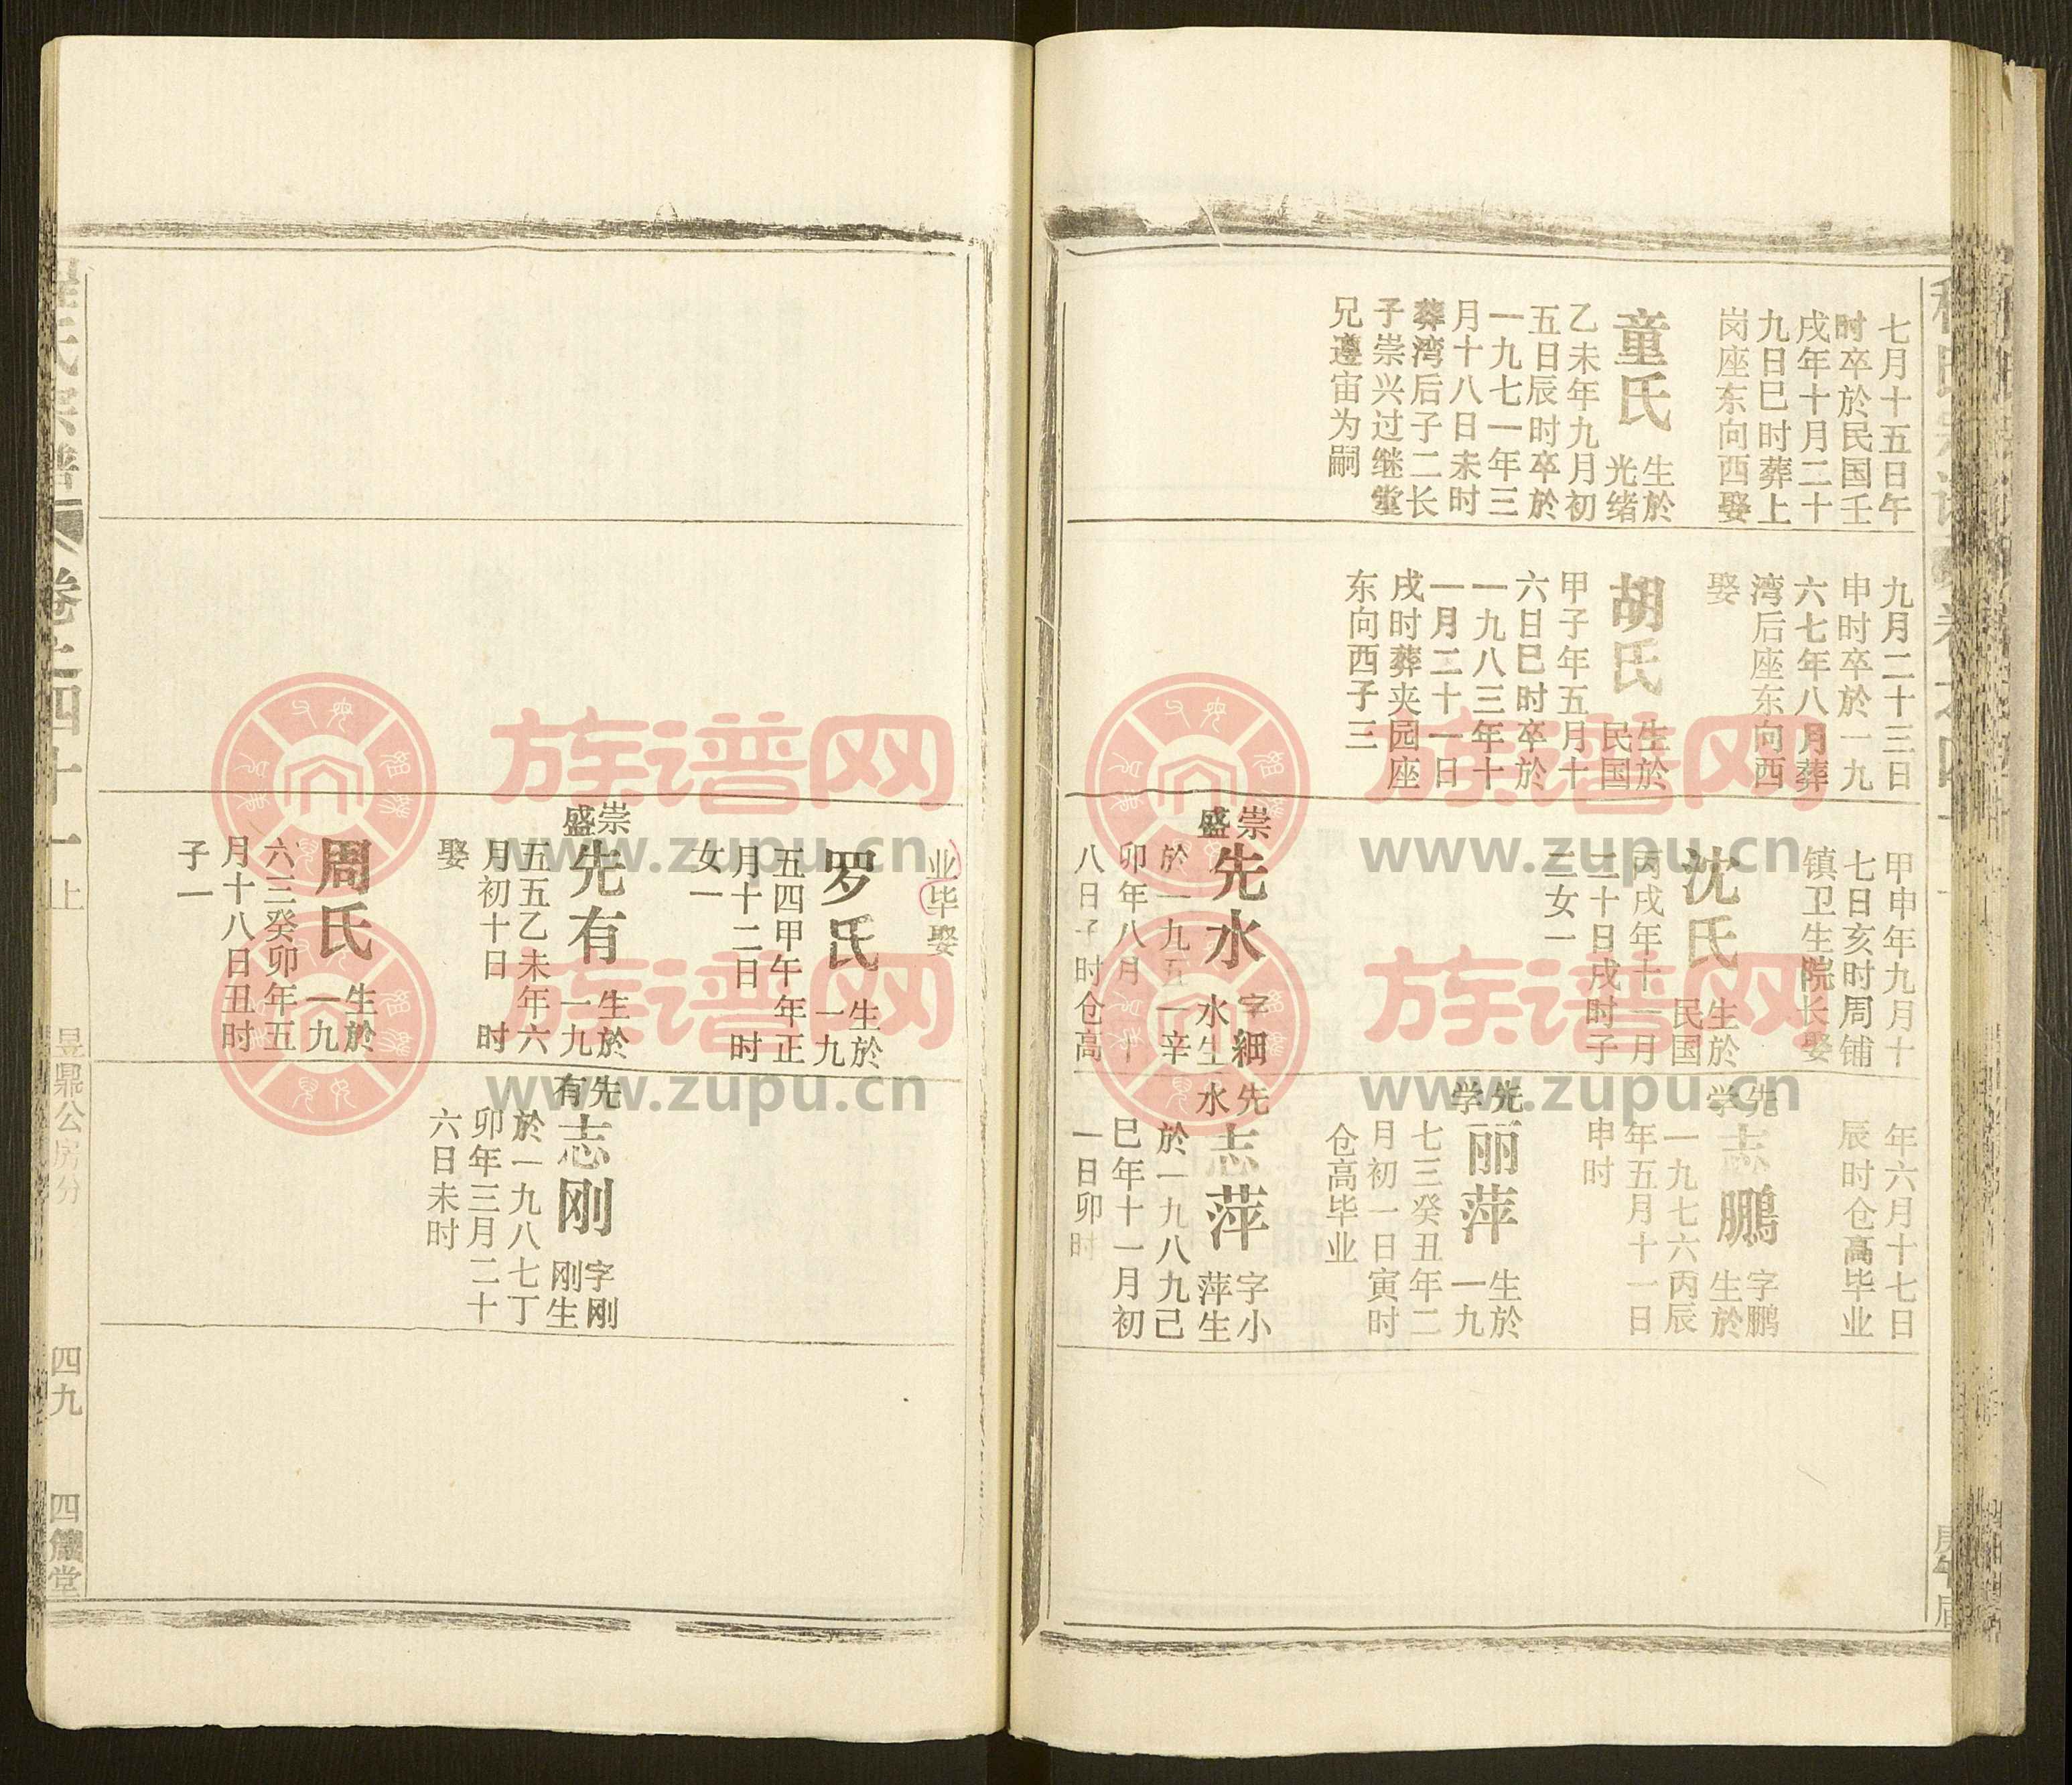 七月十五日午
时卒於民国壬
戌年十月二十
九日巳时葬上
岗座东向西娶
童氏
生於
光绪
乙未年九月初
五日辰时卒於
一九七一年三
月十八日未时
葬湾后子二长
子崇兴过继堂
兄遵宙为嗣
九月二十三日
申时卒於一九
六七年八月葬
湾后座东向西
娶
胡氏
生於
民国
甲子年五月十
六日巳时卒於
一九八三年十
一月二十一日
戌时葬夹园座
东向西子三
甲申年九月十
七日亥时周铺
镇卫生院长娶
沈氏
生於
民国
丙戌年十一月
二十日戌时子
三女一
崇
盛
先水
字细
水生
於一九五一辛
卯年八月十
八日子时仓高
年六月十七日
辰时仓高毕业
先
学
志鹏
字鹏
生於
一九七六丙辰
年五月十一日
申时
先
学
丽萍
生於
一九
七三癸丑年二
月初一日寅时
仓高毕业
先
水
志萍
字小
萍生
於一九八九己
巳年十一月初
一日卯时
业毕娶
罗氏
生於
一九
五四甲午年正
月十二日 时
女一
崇
盛
先有
生於
一九
五五乙未年六
月初十日 时
娶
周氏
生於
一九
六三癸卯年五
月十八日丑时
子一
先
有
志刚
字刚
刚生
於一九八七丁
卯年三月二十
六日未时
氏宗谱 卷之四十一 上 昱鼎公房分 四九 四箴堂
族谱网
www.zupu.cn
族谱网
www.zupu.cn
族谱网
www.zupu.cn
族谱网
www.zupu.cn